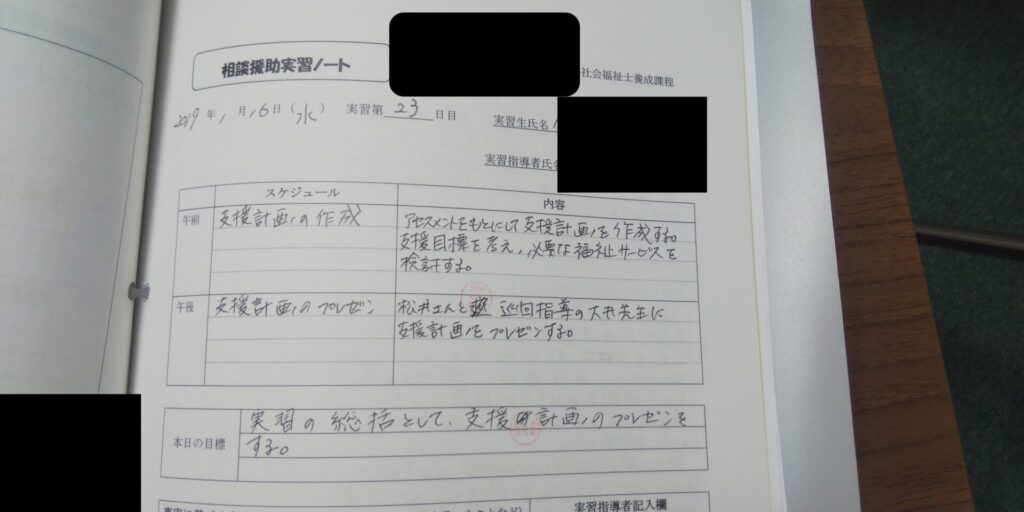 相談援助実習ノート
社会福祉士養成課程
2019年1月16日(水) 実習第23日目
実習生氏名
実習指導者氏名
スケジュール 内容
午前 支援計画の作成 アセスメントをもとにして支援計画を作成する。
支援目標を考え、必要な福祉サービスを
検討する。
午後 支援計画のプレゼン 松井さんと 巡回指導の大井先生に
支援計画をプレゼンする。
本日の目標 実習の総括として、支援計画のプレゼンを
する。
実習指導者記入欄